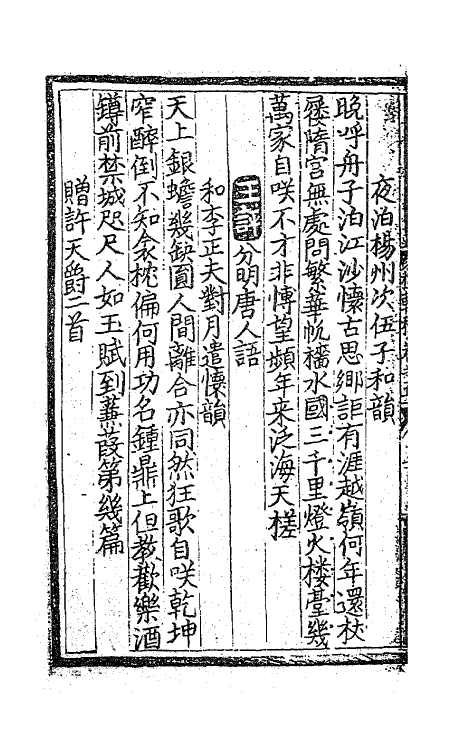 夜泊楊州次伍子和韻
晚呼舟子泊江沙懷古思鄉詎有涯越嶺何年還杖
屨隋宮無處問繁華帆檣水國三千里燈火楼臺幾
萬家自咲不才非博望頻年来泛海天槎
王評分明唐人語
和李正夫對月遣懷韻
天上銀蟾幾缺圓人間離合亦同然狂歌自咲乾坤
窄醉倒不知衾枕偏何用功名鍾鼎上但教歡樂酒
鐏前禁城咫尺人如玉賦到蒹葭第幾篇
贈許天爵二首